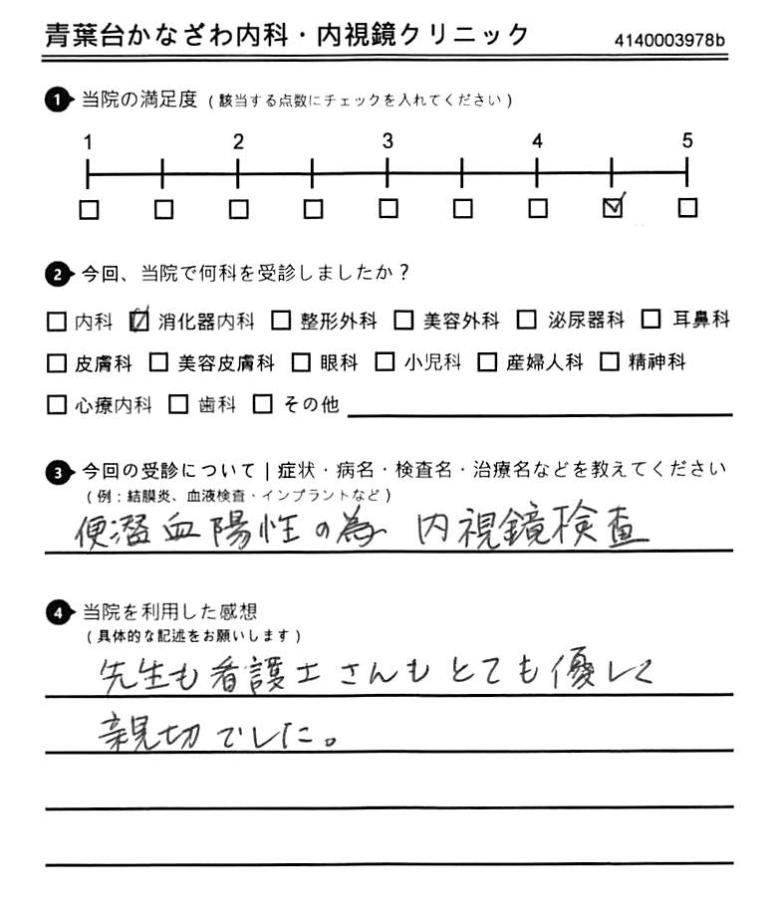 青葉台かなざわ内科・内視鏡クリニック 4140003978b
1 当院の満足度（該当する点数にチェックを入れてください）
1 2 3 4 5
2 今回、当院で何科を受診しましたか？
内科 消化器内科 整形外科 美容外科 泌尿器科 耳鼻科
皮膚科 美容皮膚科 眼科 小児科 産婦人科 精神科
心療内科 歯科 その他
3 今回の受診について｜症状・病名・検査名・治療名などを教えてください
（例：結膜炎、血液検査・インプラントなど）
便潜血陽性の為 内視鏡検査
4 当院を利用した感想
（具体的な記述をお願いします）
先生も看護士さんもとても優しく
親切でした。